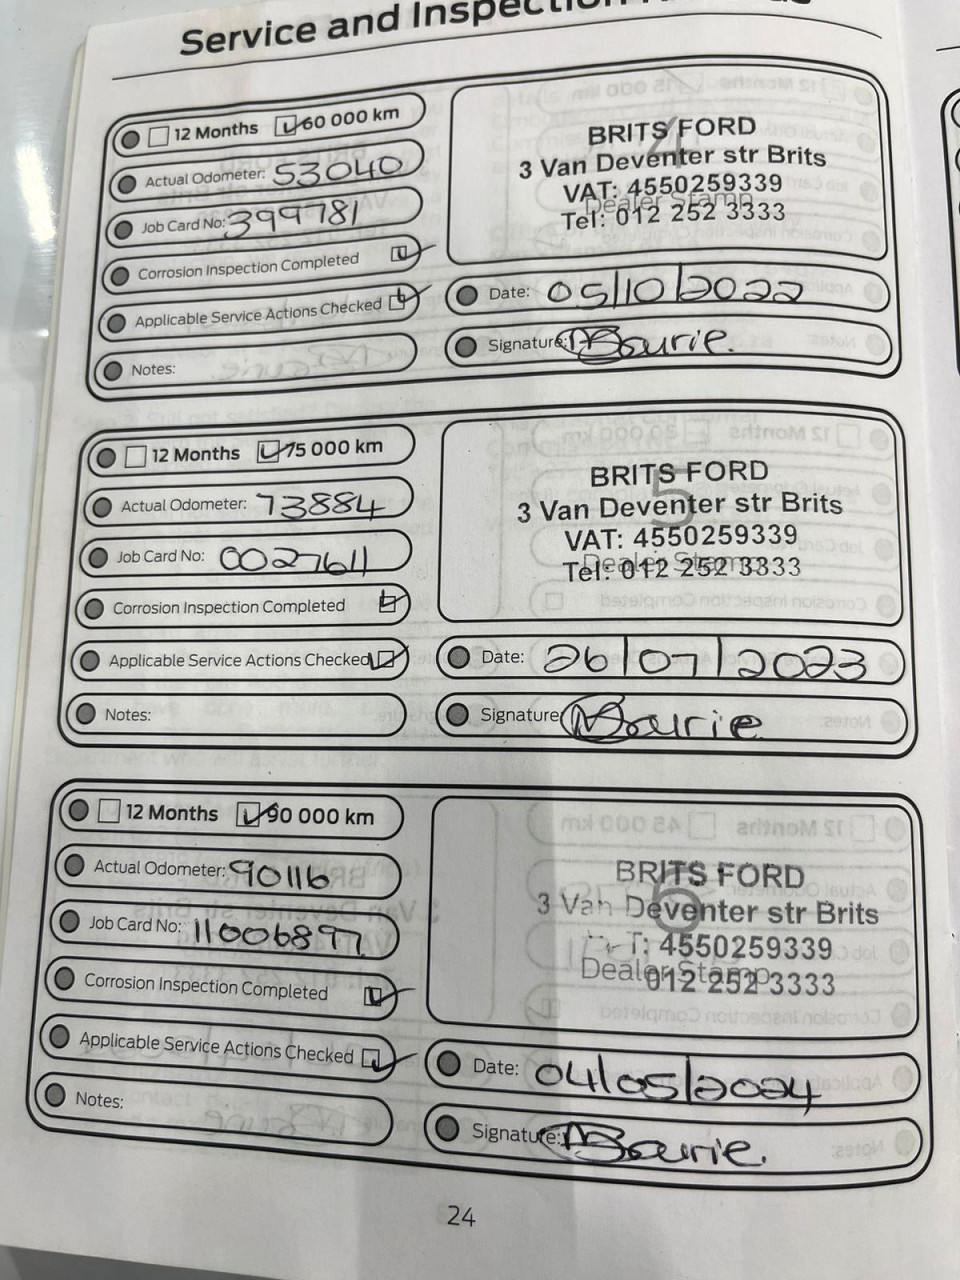 Service and Inspection
12 Months 60 000 km
Actual Odometer: 53040
Job Card No: 399781
Corrosion Inspection Completed
Applicable Service Actions Checked
Notes:
4
BRITS FORD
3 Van Deventer str Brits
VAT: 4550259339
Dealer Stamp
Tel: 012 252 3333
Date: 05/10/2022
Signature: Bourie.
12 Months 75 000 km
Actual Odometer: 73884
Job Card No: 0027611
Corrosion Inspection Completed
Applicable Service Actions Checked
Notes:
5
BRITS FORD
3 Van Deventer str Brits
VAT: 4550259339
Dealer Stamp
Tel: 012 252 3333
Date: 26/07/2023
Signature:
12 Months 90 000 km
Actual Odometer: 90116
Job Card No: 11006897
Corrosion Inspection Completed
Applicable Service Actions Checked
Notes:
6
BRITS FORD
3 Van Deventer str Brits
T: 4550259339
Dealer Stamp
012 252 3333
Date: 04/05/2024
Signature:
24